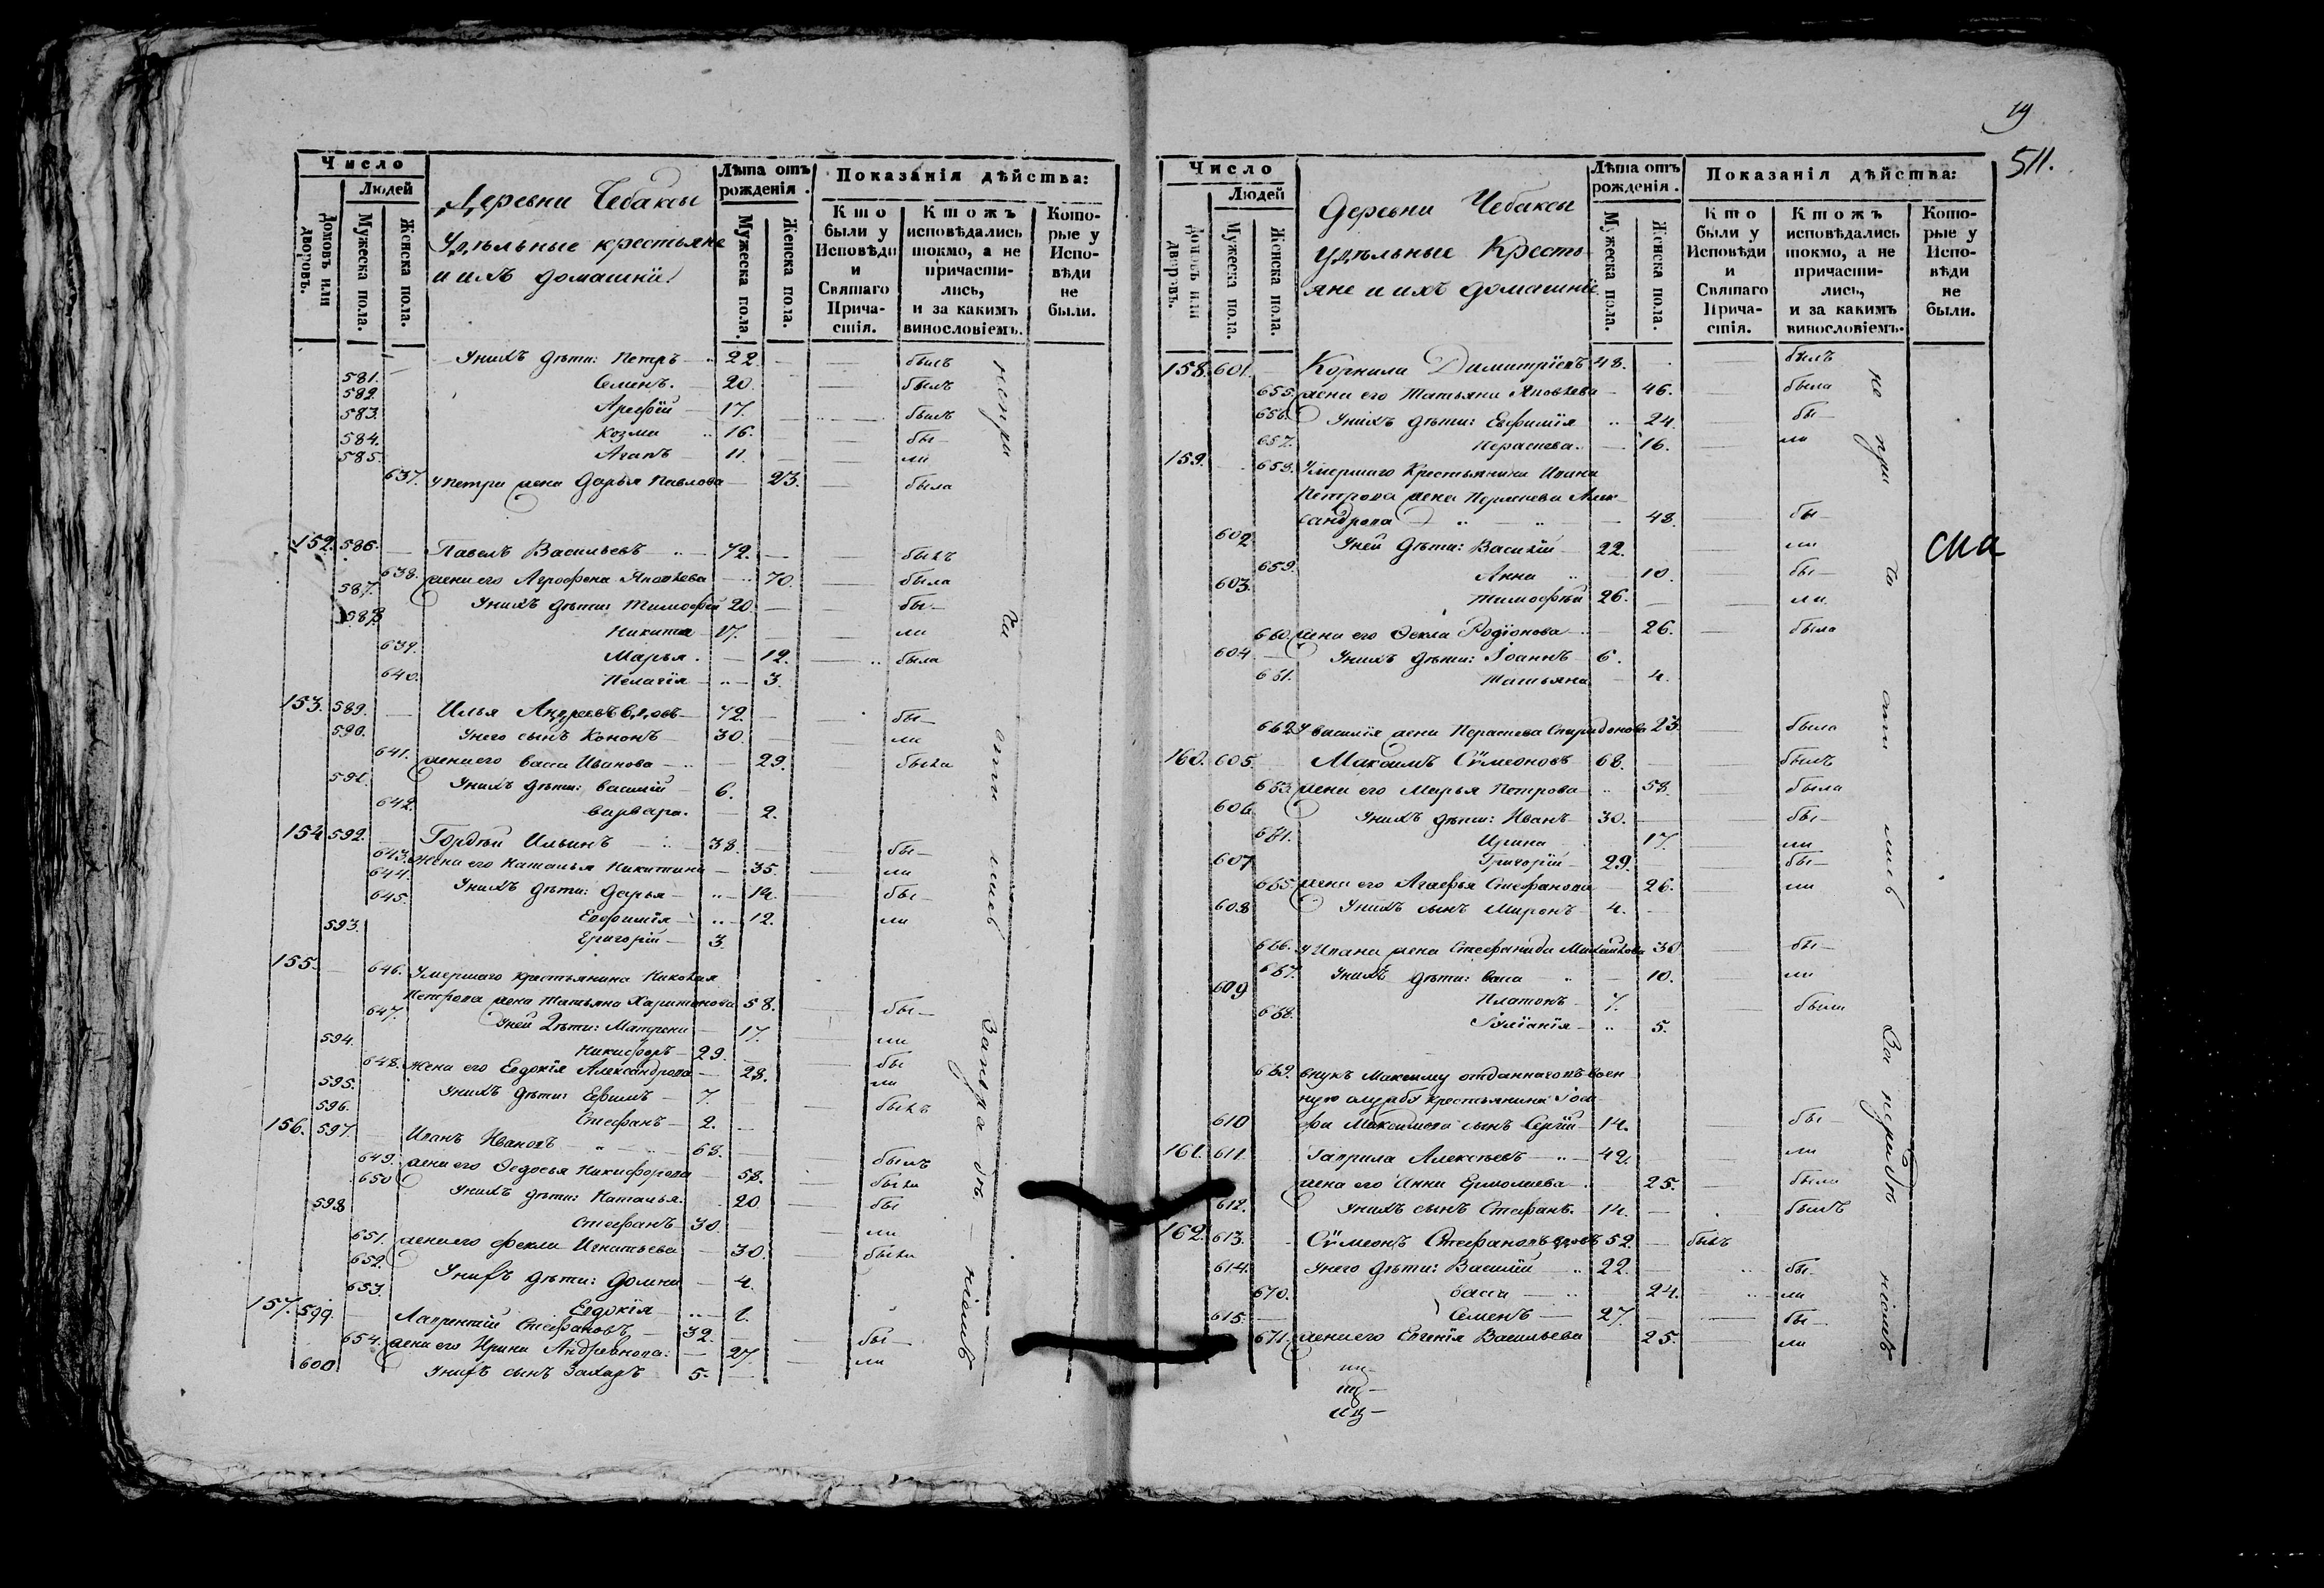 19
511.
Число
Людей
Домовъ или дворовъ.
Мужеска пола.
Женска пола.
Деревни Чебаксы
Удѣльные крестьяне
и ихъ домашніи.
Лѣта отъ рожденія.
Мужеска пола.
Женска пола.
Показанія дѣйства:
Кто были у Исповѣди и Святаго Причастія.
Ктожъ исповѣдались токмо, а не причастились, и за какимъ винословіемъ.
Которые у Исповѣди не были.
581. Унихъ дѣти: Петръ 22. былъ
582. Семинъ. 20. былъ
583. Арефій 17. былъ
584. Козма 16. бы-
585. Агапъ 11. ли
637. у Петра жена Дарья Павлова 23. была
152. 586. Павелъ Васильевъ 72. былъ
638. жена его Агрофена Яковлева 70. была
587. Унихъ дѣти: Тимофей 20. бы-
588 Никита 17. ли
639. Марья. 12. была
640. Пелагія 3.
153. 589. Илья Андреевъ вдовъ 72. бы-
590. Унего сынъ Кононъ 30. ли
641. жена его Васса Иванова 29. была
591. Унихъ дѣти: Василій 6.
642. Варвара. 2.
154 592. Гордѣй Ильинъ 38. бы-
643. Жена его Наталья Никитина 35. ли
644. Унихъ дѣти: Дарья 14. бы-
645. Евфимія 12. ли
593. Григорій 3.
155. 646. Умершаго крестьянина Николая
Петрова жена Татьяна Харитонова 58. бы-
647. Уней Дѣти: Матрена 17. ли
594. Никифоръ 29. бы
648. Жена его Евдокія Александрова 28. ли
595. Унихъ дѣти: Ефимъ 7. былъ
596. Стефанъ 2.
156. 597. Иванъ Ивановъ 63. былъ
649. жена его Ѳедосья Никифорова 58. была
650 Унихъ дѣти: Наталья. 20 бы
598 Стефанъ 30. ли
651. жена его Фекла Игнатьева 30. была
652. Унихъ дѣти: Домна 4.
653. Евдокія 1.
157. 599. Лаврентій Стефановъ 32. бы-
654. жена его Ирина Андреянова: 27. ли
600 Унихъ сынъ Захаръ 5.
непричастились Занерадѣніемъ
Число
Людей
Домовъ или дворовъ.
Мужеска пола.
Женска пола.
Деревни Чебаксы
удѣльные Кресть-
яне и ихъ домашніе
Лѣта отъ рожденія.
Мужеска пола.
Женска пола.
Показанія дѣйства:
Кто были у Исповѣди и Святаго Причастія.
Ктожъ исповѣдались токмо, а не причастились, и за какимъ винословіемъ.
Которые у Исповѣди не были.
158. 601. Корнила Димитріевъ 48. былъ
655. жена его Татьяна Яковлева 46. была
656. Унихъ дѣти: Евфимія 24. бы-
657. Параскева. 16. ли
159. 658. Умершаго Крестьянина Ивана
Петрова жена Параскева Алек-
сандрова 48. бы-
602 Уней Дѣти: Василій 22. ли
659. Анна 10. бы-
603. Тимофѣй 26. ли.
660. жена его Ѳекла Родіонова 26. была
604 Унихъ дѣти: Іоаннъ 6.
661. Татьяна 4.
662 у Василія жена Параскева Спиридонова 23. была
160. 605. Максимъ Сѷмеоновъ 68. былъ
663 жена его Марья Петрова 58. была
606. Унихъ дѣти: Иванъ 30. бы-
664. Ирина 17. ли
607 Григорій 29. бы-
665. жена его Агафья Стефанова 26. ли
608 Унихъ сынъ Миронъ 4.
666. у Ивана жена Стефанида Михайлова 30 бы-
667. Унихъ дѣти: Васса 10. ли
609 Платонъ 7. были
668. Іуліанія 5.
669. внукъ Максиму отданнаго въ воен
ную службу крестьянина Іоси-
610 фа Максимова сынъ Сергій 14. бы-
161. 611. Гаврила Алексѣевъ 42. ли
жена его Анна Ермолаева 25. была
612. Унихъ сынъ Стефанъ. 14. былъ
162. 613. Сѷмеонъ Стефановъ вдовъ 52. былъ
614. Унего дѣти: Василій 22. бы-
670. Васса 24. ли
615. Семенъ 27. бы-
671. жена его Евгенія Васильева 25. ли
не причастились За нерадѣніемъ
сна